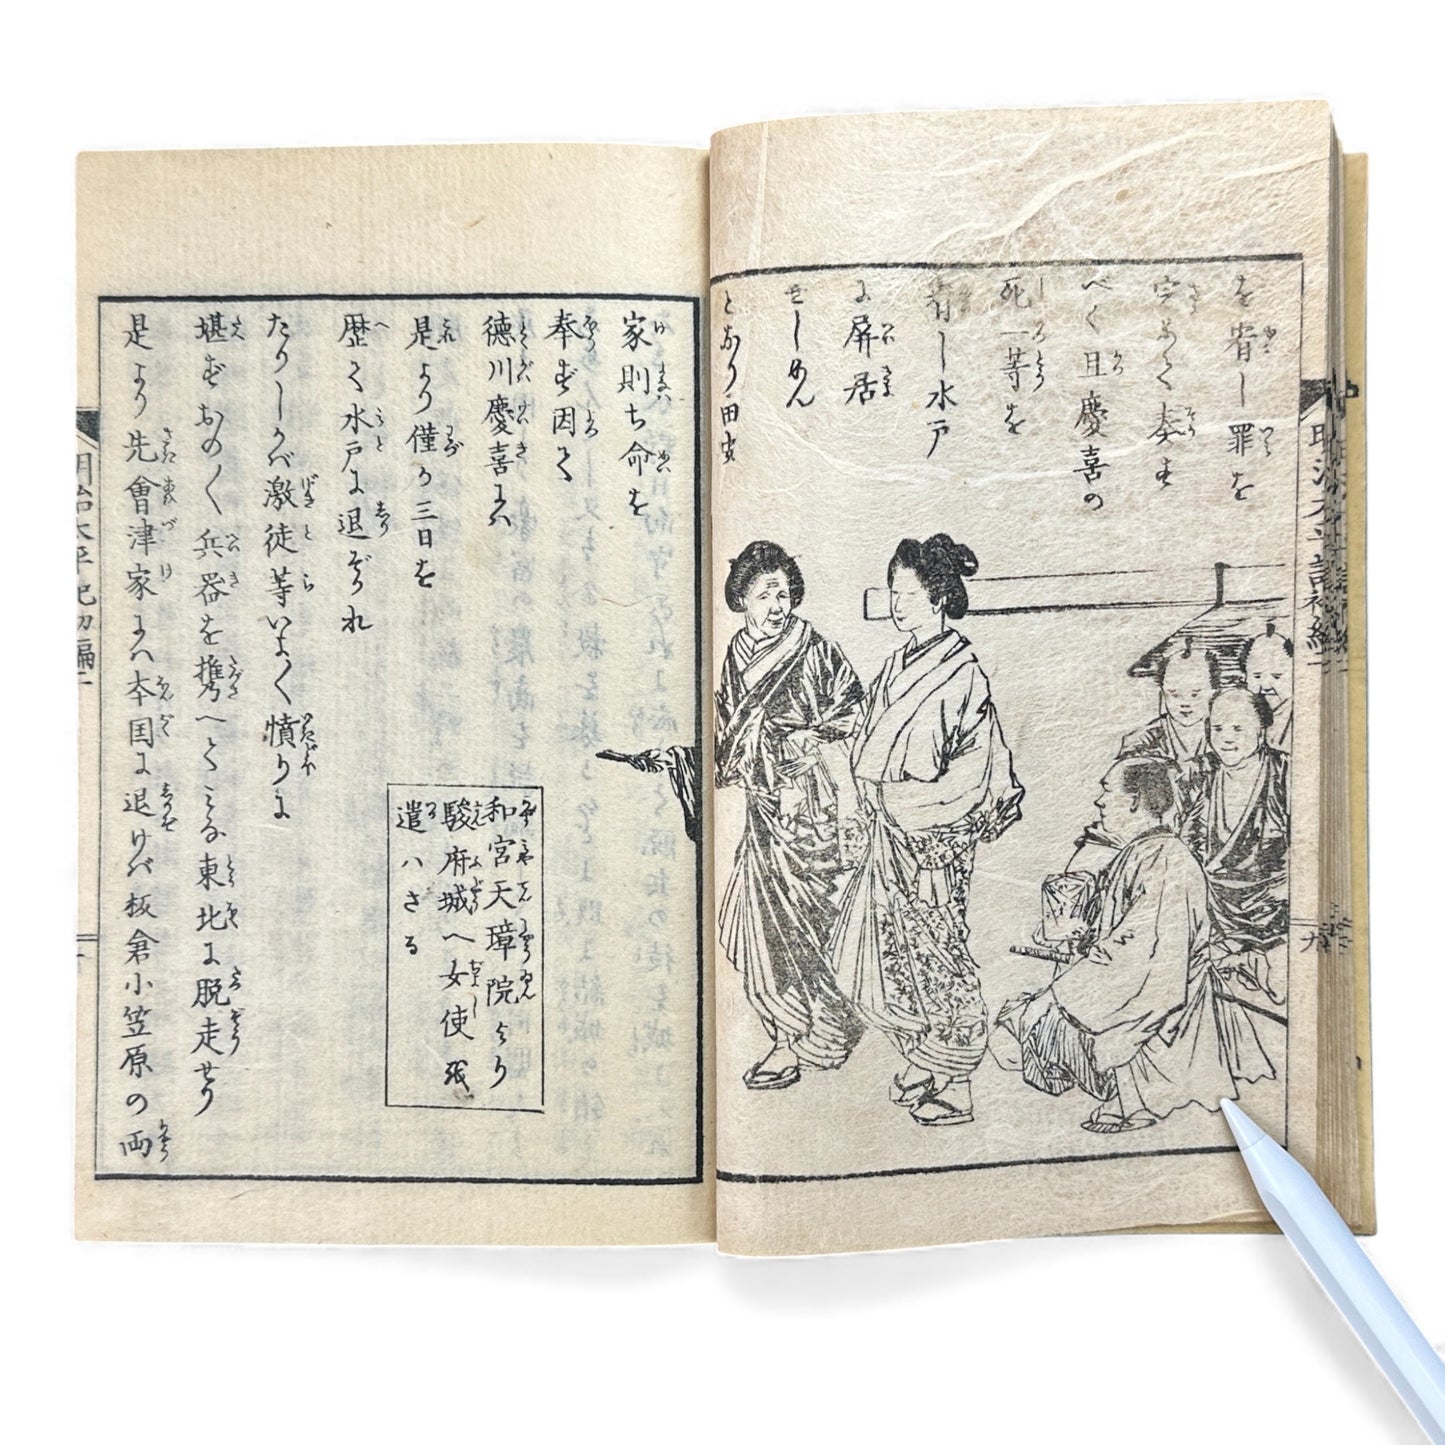 を宥し罪を
定めて奏す
べく且慶喜の
死一等を
宥し水戸
に屏居
せしめん
となり田安
明治太平記初編二
九
家則ち命を
奉ず因て
徳川慶喜は
是より僅か三日を
歴て水戸に退ぞかれ
たりしかば激徒等いよ〱憤りに
堪ずおの〱兵器を携へところ東北に脱走せり
是より先會津家は本国に退けば板倉小笠原の両
和宮天璋院より
駿府城へ女使を
遣ハさる
明治太平記初編二